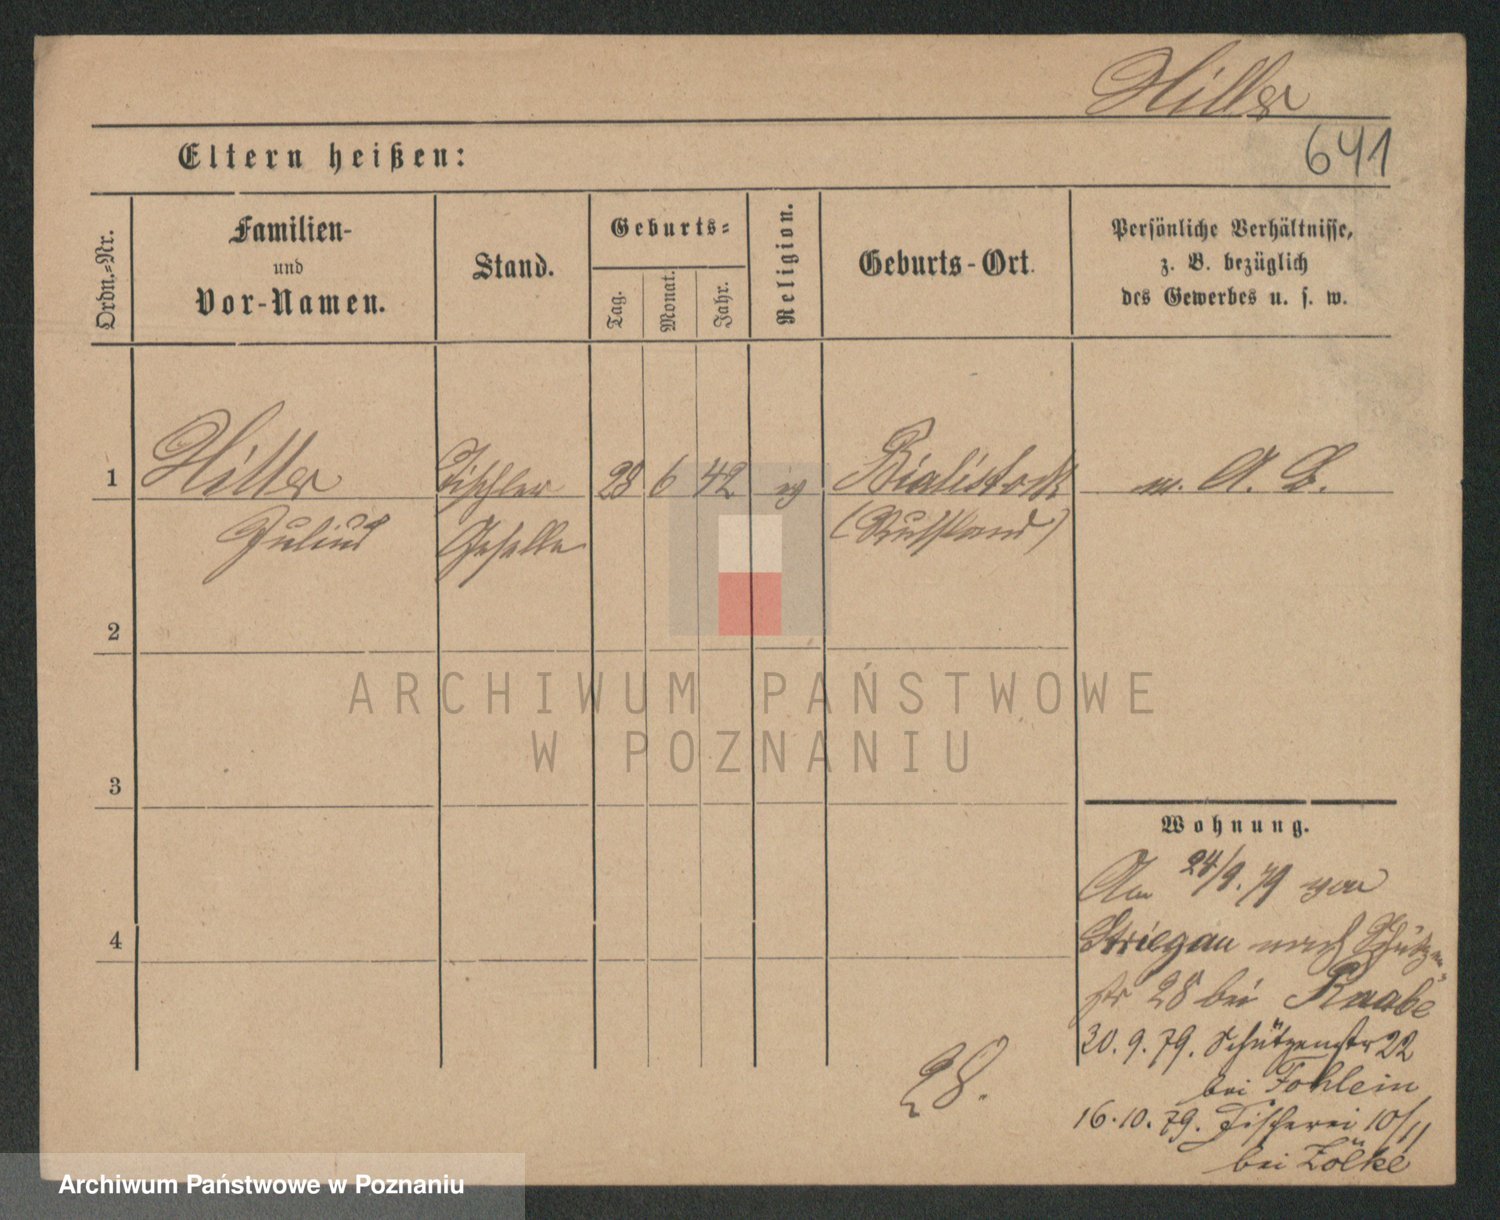 Hiller
641
Eltern heißen:
Ordn.=Nr.
Familien-
und
Vor-Namen.
Stand.
Geburts=
Tag.
Monat.
Jahr.
Religion.
Geburts-Ort.
Persönliche Verhältnisse,
z. B. bezüglich
des Gewerbes u. s. w.
1 Hiller Tischler 28 6 42 ev Bialistock m. A. B.
Julius Geselle (Russland)
2
ARCHIWUM PAŃSTWOWE
W POZNANIU
3
Wohnung.
Am 24/9. 79 von
4 Striegau nach Schützen=
str 28 bei Raabe
30. 9. 79. Schützenstr 22
bei Fohlein
28.
16. 10. 79. Fischerei 10/11
bei Zölke
Archiwum Państwowe w Poznaniu